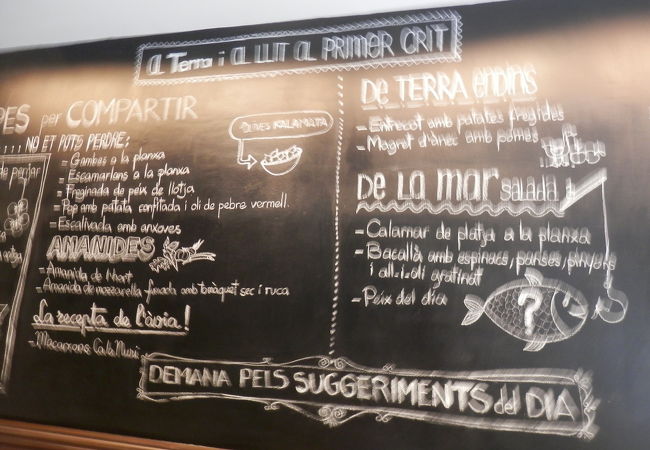 a Terra i a LLIT al PRIMER CRIT
PES per COMPARTIR
...NO ET POTS PERDRE:
- Gambes a la planxa
- Escamarlans a la planxa
- Freginada de peix de llotja
- Pop amb patata confitada i oli de pebre vermell.
- Escalivada amb anxoves
OLIVES KALAMATA
AMANIDES
- Amanida de l'hort
- Amanida de mozzarella fumada amb tomàquet sec i ruca
La recepta de l'àvia!
- Macarrons Ca la Nuri
De TERRA endins
- Entrecot amb patates fregides
- Magret d'ànec amb pomes
De La mar salada
- Calamar de platja a la planxa
- Bacallà amb espinacs, panses, pinyons
i all.i.oli gratinat
- Peix del dia
?
DEMANA PELS SUGGERIMENTS del DIA